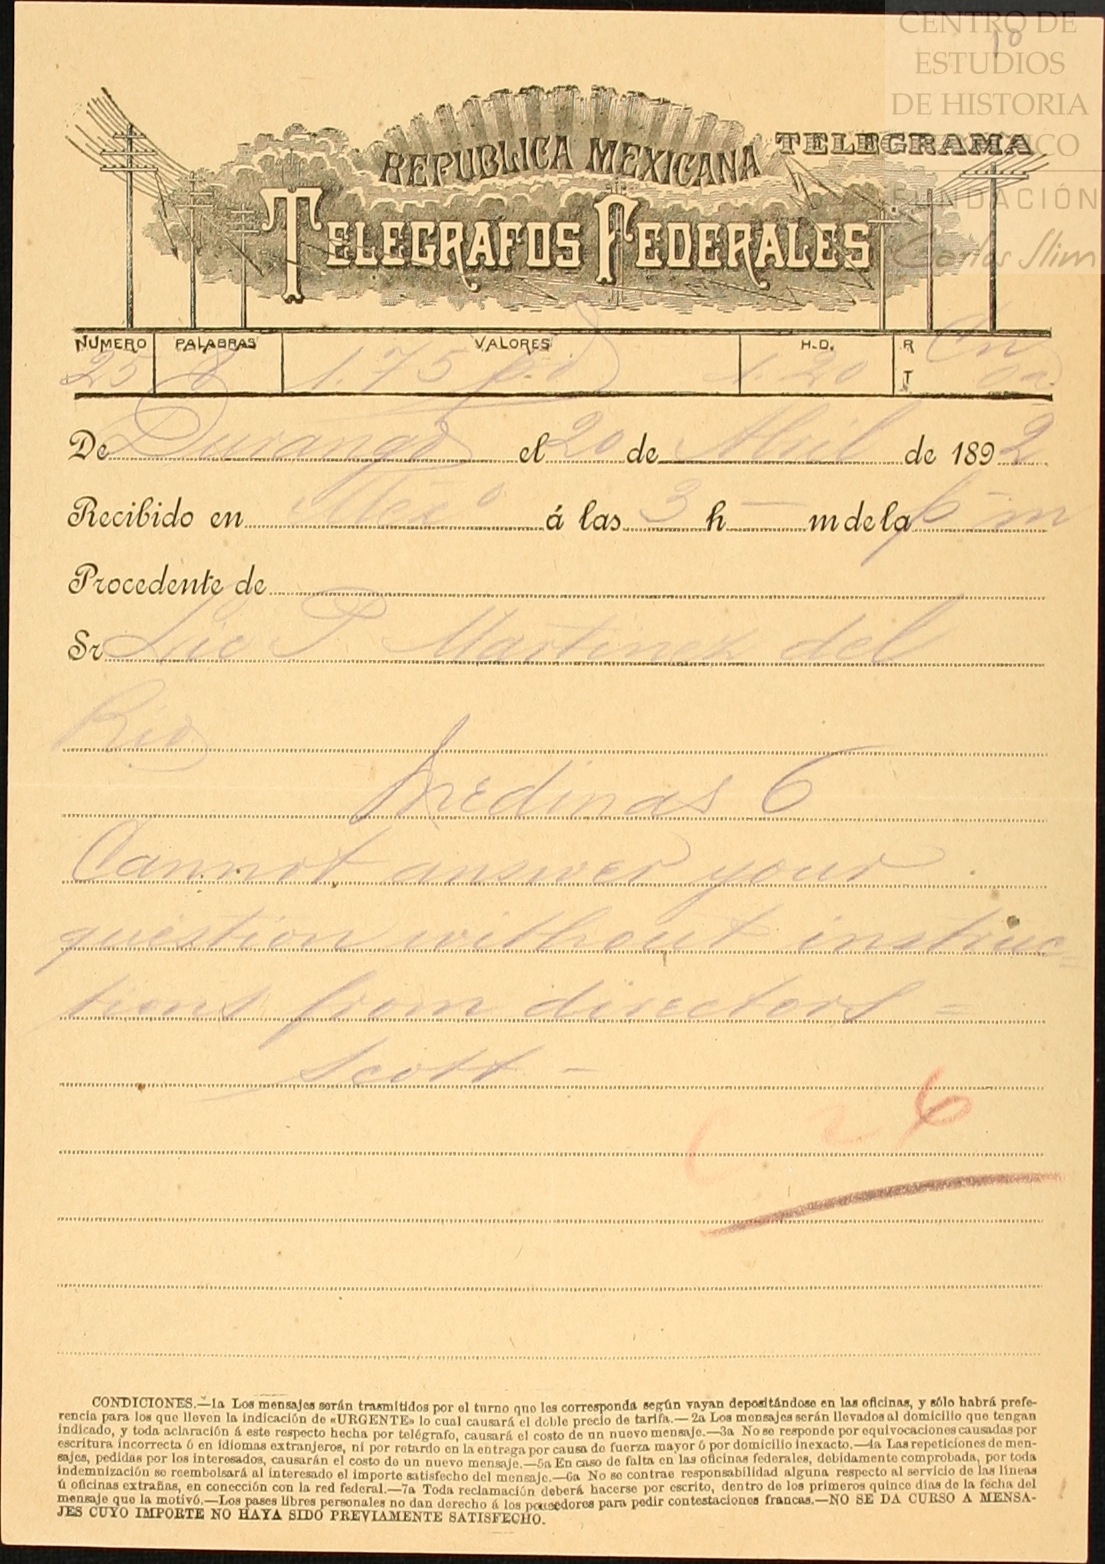 CENTRO DE
ESTUDIOS
DE HISTORIA
CO
FUNDACIÓN
Carlos Slim
10
REPUBLICA MEXICANA
TELEGRAMA
TELEGRAFOS FEDERALES
NUMERO PALABRAS VALORES H.D. R
25 8 1.75 p.d 1.20 T
De Durango el 20 de Abril de 1892
Recibido en Mexo á las 3 h — m de la p m
Procedente de
Sr Lic P. Martinez del
Rio
Medinas 6
Cannot answer your
question without instruc=
tions from directors =
Scott -
C. 26
CONDICIONES.—1a Los mensajes serán trasmitidos por el turno que les corresponda según vayan depositándose en las oficinas, y sólo habrá prefe-
rencia para los que lleven la indicación de «URGENTE» lo cual causará el doble precio de tarifa.—2a Los mensajes serán llevados al domicilio que tengan
indicado, y toda aclaración á este respecto hecha por telégrafo, causará el costo de un nuevo mensaje.—3a No se responde por equivocaciones causadas por
escritura incorrecta ó en idiomas extranjeros, ni por retardo en la entrega por causa de fuerza mayor ó por domicilio inexacto.—4a Las repeticiones de men-
sajes, pedidas por los interesados, causarán el costo de un nuevo mensaje.—5a En caso de falta en las oficinas federales, debidamente comprobada, por toda
indemnización se reembolsará al interesado el importe satisfecho del mensaje.—6a No se contrae responsabilidad alguna respecto al servicio de las líneas
ú oficinas extrañas, en conección con la red federal.—7a Toda reclamación deberá hacerse por escrito, dentro de los primeros quince días de la fecha del
mensaje que la motivó.—Los pases libres personales no dan derecho á los poseedores para pedir contestaciones francas.—NO SE DA CURSO A MENSA-
JES CUYO IMPORTE NO HAYA SIDO PREVIAMENTE SATISFECHO.